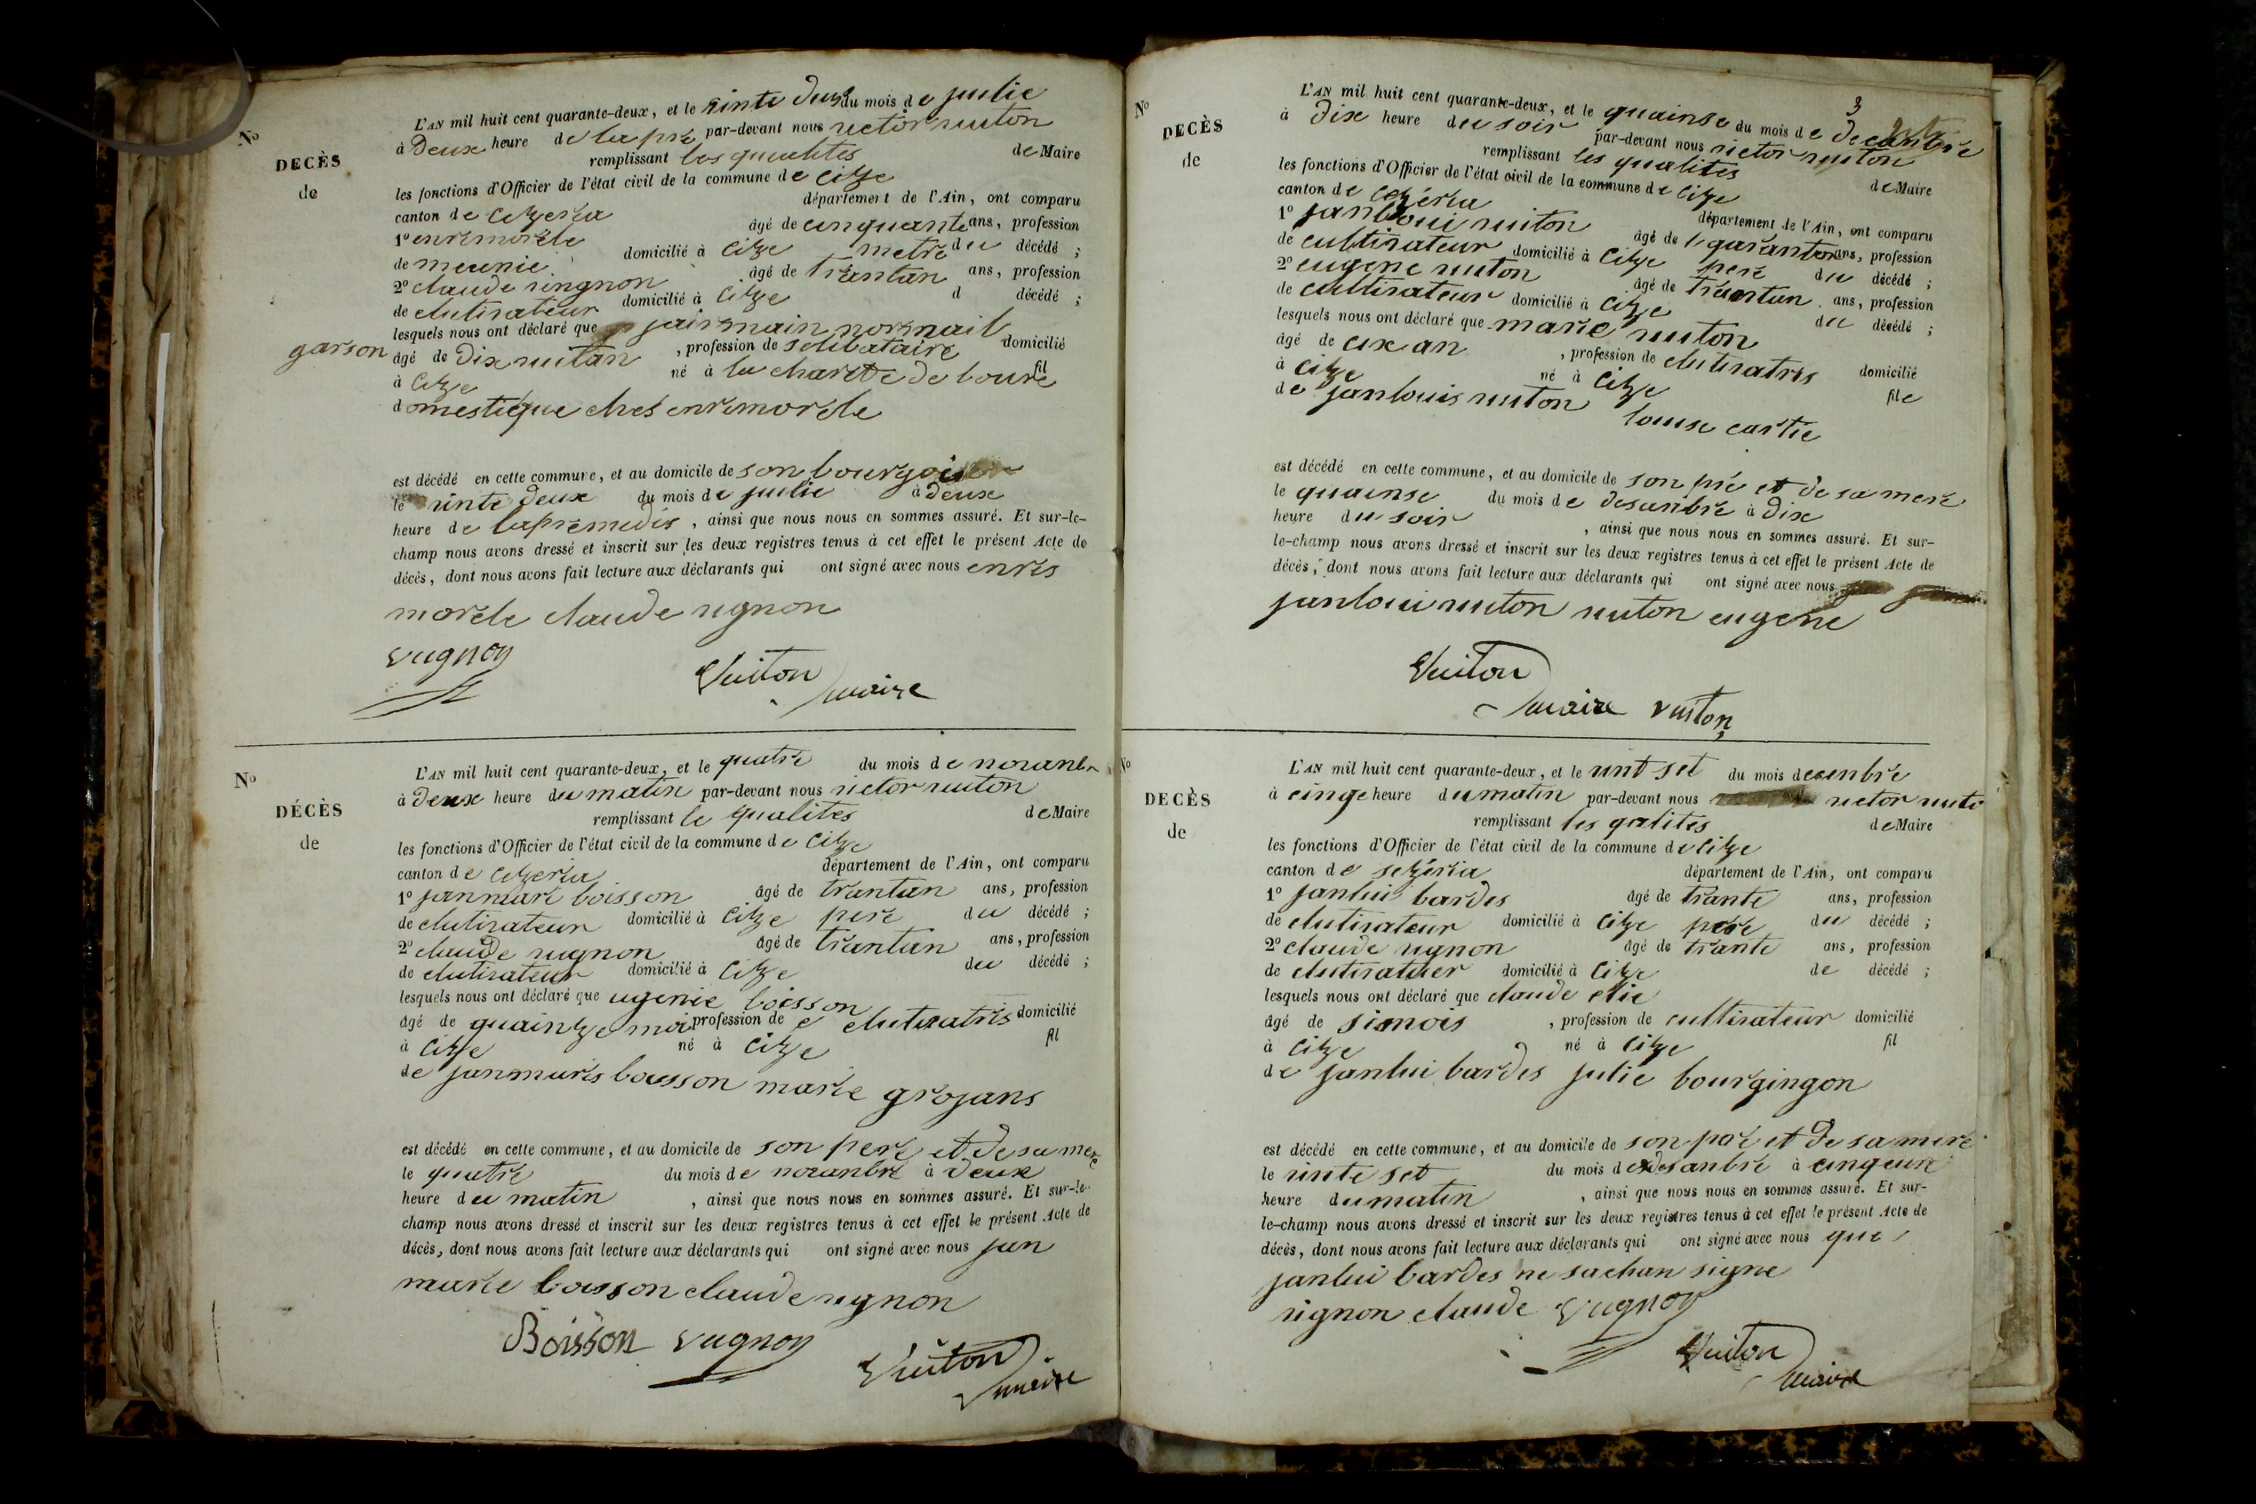 No
DECÈS
de
L'AN mil huit cent quarante-deux, et le vinte deux du mois de julie
à deux heure de la pré par-devant nous victor vuiton
remplissant les qualites de Maire
les fonctions d'Officier de l'état civil de la commune de Cize
canton de Ceyzeria département de l'Ain, ont comparu
1º enri morele âgé de cinquante ans, profession
de meunie domicilié à Cize metre du décédé ;
2º claude vingnon âgé de trantan ans, profession
de clutivateur domicilié à Cize d décédé ;
lesquels nous ont déclaré que jairmain normail
garson
âgé de dix uitan , profession de selibataire domicilié
à Cize né à la charité de boure fil
domestique ches enri morele
est décédé en cette commune, et au domicile de son bourgois
le vinte deux du mois de julie à deux
heure de lapremedis , ainsi que nous nous en sommes assuré. Et sur-le-
champ nous avons dressé et inscrit sur les deux registres tenus à cet effet le présent Acte de
décès, dont nous avons fait lecture aux déclarants qui ont signé avec nous enris
morele claude vignon
Vugnon
Vuiton
maire
No
DÉCÈS
de
L'AN mil huit cent quarante-deux, et le quatre du mois de novanbr
à deux heure du matin par-devant nous victor vuiton
remplissant le qualites de Maire
les fonctions d'Officier de l'état civil de la commune de Cize
canton de Ceyzeria département de l'Ain, ont comparu
1º janmari boisson âgé de trantan ans, profession
de clutivateur domicilié à Cize pere du décédé ;
2º claude vugnon âgé de trantan ans, profession
de clutivateur domicilié à Cize du décédé ;
lesquels nous ont déclaré que ugenie boisson
âgé de quainze moi profession de clutivatris domicilié
à Cize né à Cize fil
de janmaris boisson marie grojans
est décédé en cette commune, et au domicile de son pere et de sa mere
le quatre du mois de novanbre à deux
heure du matin , ainsi que nous nous en sommes assuré. Et sur-le-
champ nous avons dressé et inscrit sur les deux registres tenus à cet effet le présent Acte de
décès, dont nous avons fait lecture aux déclarants qui ont signé avec nous jan
marie boisson claude vignon
Boisson Vugnon
Vuiton
maire
No
DECÈS
de
3
L'AN mil huit cent quarante-deux, et le quainse du mois de
à dix heure du soir par-devant nous victor vuiton
remplissant les qualites de Maire
les fonctions d'Officier de l'état civil de la commune de Cize
canton de Ceyzéria département de l'Ain, ont comparu
1º jan loui vuiton âgé de ans, profession
de cultivateur domicilié à Cize pere du décédé ;
2º eugene vuiton âgé de trantan ans, profession
de cultivateur domicilié à Cize du décédé ;
lesquels nous ont déclaré que marie vuiton
âgé de six an , profession de clutivatris domicilié
à Cize né à Cize file
de janlouis vuiton
louise cartie
est décédé en cette commune, et au domicile de son pré et de sa mere
le quainse du mois de desanbre à dix
heure du soir , ainsi que nous nous en sommes assuré. Et sur-
le-champ nous avons dressé et inscrit sur les deux registres tenus à cet effet le présent Acte de
décès, dont nous avons fait lecture aux déclarants qui ont signé avec nous
janloui vuiton vuiton eugene
Vuiton
maire vuiton
No
DECÈS
de
L'AN mil huit cent quarante-deux, et le vint set du mois desenbre
à cinqe heure du matin par-devant nous victor vuito
remplissant les qalites de Maire
les fonctions d'Officier de l'état civil de la commune de Cize
canton de seyzéria département de l'Ain, ont comparu
1º janlui bardes âgé de trante ans, profession
de clutivateur domicilié à Cize pere du décédé ;
2º claude vugnon âgé de trante ans, profession
de clutivatuer domicilié à Cize de décédé ;
lesquels nous ont déclaré que claude elie
âgé de simois , profession de cultivateur domicilié
à Cize né à Cize fil
de janlui bardes julie bourgingon
est décédé en cette commune, et au domicile de son paré et de sa mere
le vinte set du mois de desanbre à
heure du matin , ainsi que nous nous en sommes assuré. Et sur-
le-champ nous avons dressé et inscrit sur les deux registres tenus à cet effet le présent Acte de
décès, dont nous avons fait lecture aux déclarants qui ont signé avec nous que
janlui bardes ne sachan signe
vignon claude Vugnon
Vuiton
maire